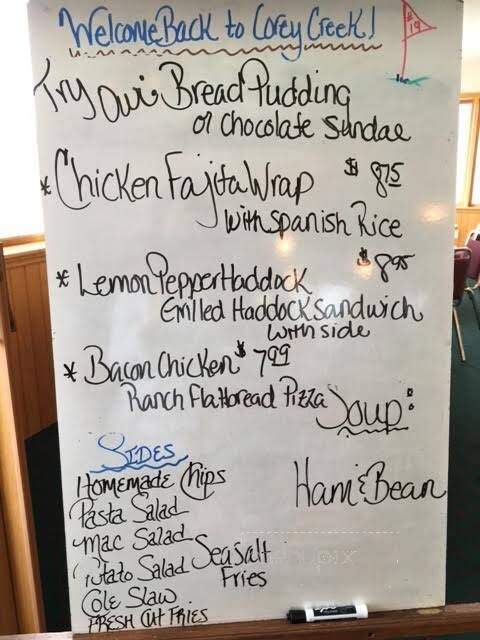 Welcome Back to Corey Creek!
19
Try Our Bread Pudding
or Chocolate Sundae
* Chicken Fajita Wrap $8.75
with Spanish Rice
* Lemon Pepper Haddock $8.95
Grilled Haddock Sandwich
with side
* Bacon Chicken $7.99
Ranch Flatbread Pizza
Soup:
Ham & Bean
SIDES
Homemade Chips
Pasta Salad
Mac Salad
Potato Salad
Cole Slaw
FRESH CUT FRIES
Sea Salt
Fries